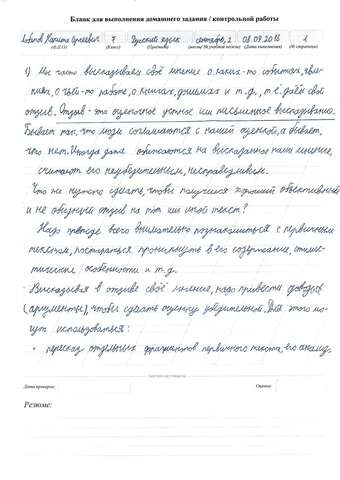 Бланк для выполнения домашнего задания / контрольной работы
Никита Сергеевич 7 Русский язык сентябрь, 2 08.09.2015 1
(Ф.И.О) (Класс) (Предмет) (месяц/ № учебной недели) (Дата выполнения) (№ страницы)
1) Мы часто высказываем своё мнение о каких-то событиях, явле-
ниях, о чьей-то работе, о книгах, фильмах и т.д., т.е. даём свой
отзыв. Отзыв - это оценочное устное или письменное высказывание.
Бывает так, что люди соглашаются с нашей оценкой, а бывает,
что нет. Иногда даже обижаются на высказанное нами мнение,
считают его неубедительным, несправедливым.
Что же нужно сделать, чтобы получился хороший объективный
и не обидный отзыв на тот или иной текст?
Надо прежде всего внимательно познакомиться с первичным
текстом, постараться проникнуть в его содержание, стилис-
тические особенности и т.д.
Высказывая в отзыве своё мнение, надо привести доводы
(аргументы), чтобы сделать оценку убедительной. Для этого мо-
гут использоваться:
• пересказ отдельных фрагментов первичного текста, его анализ,
Дата проверки: Оценка:
Резюме: